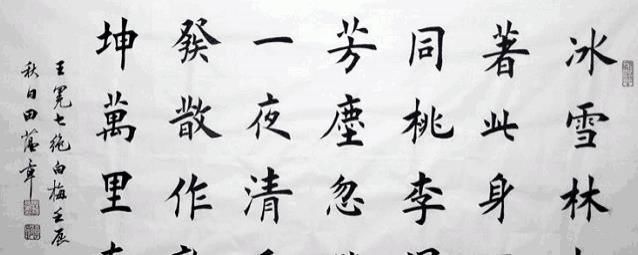 冰雪林
著此身
同桃李
芳塵忽
一夜清
發散作
坤萬里
王冕七絕白梅壬辰
秋日田蘊章